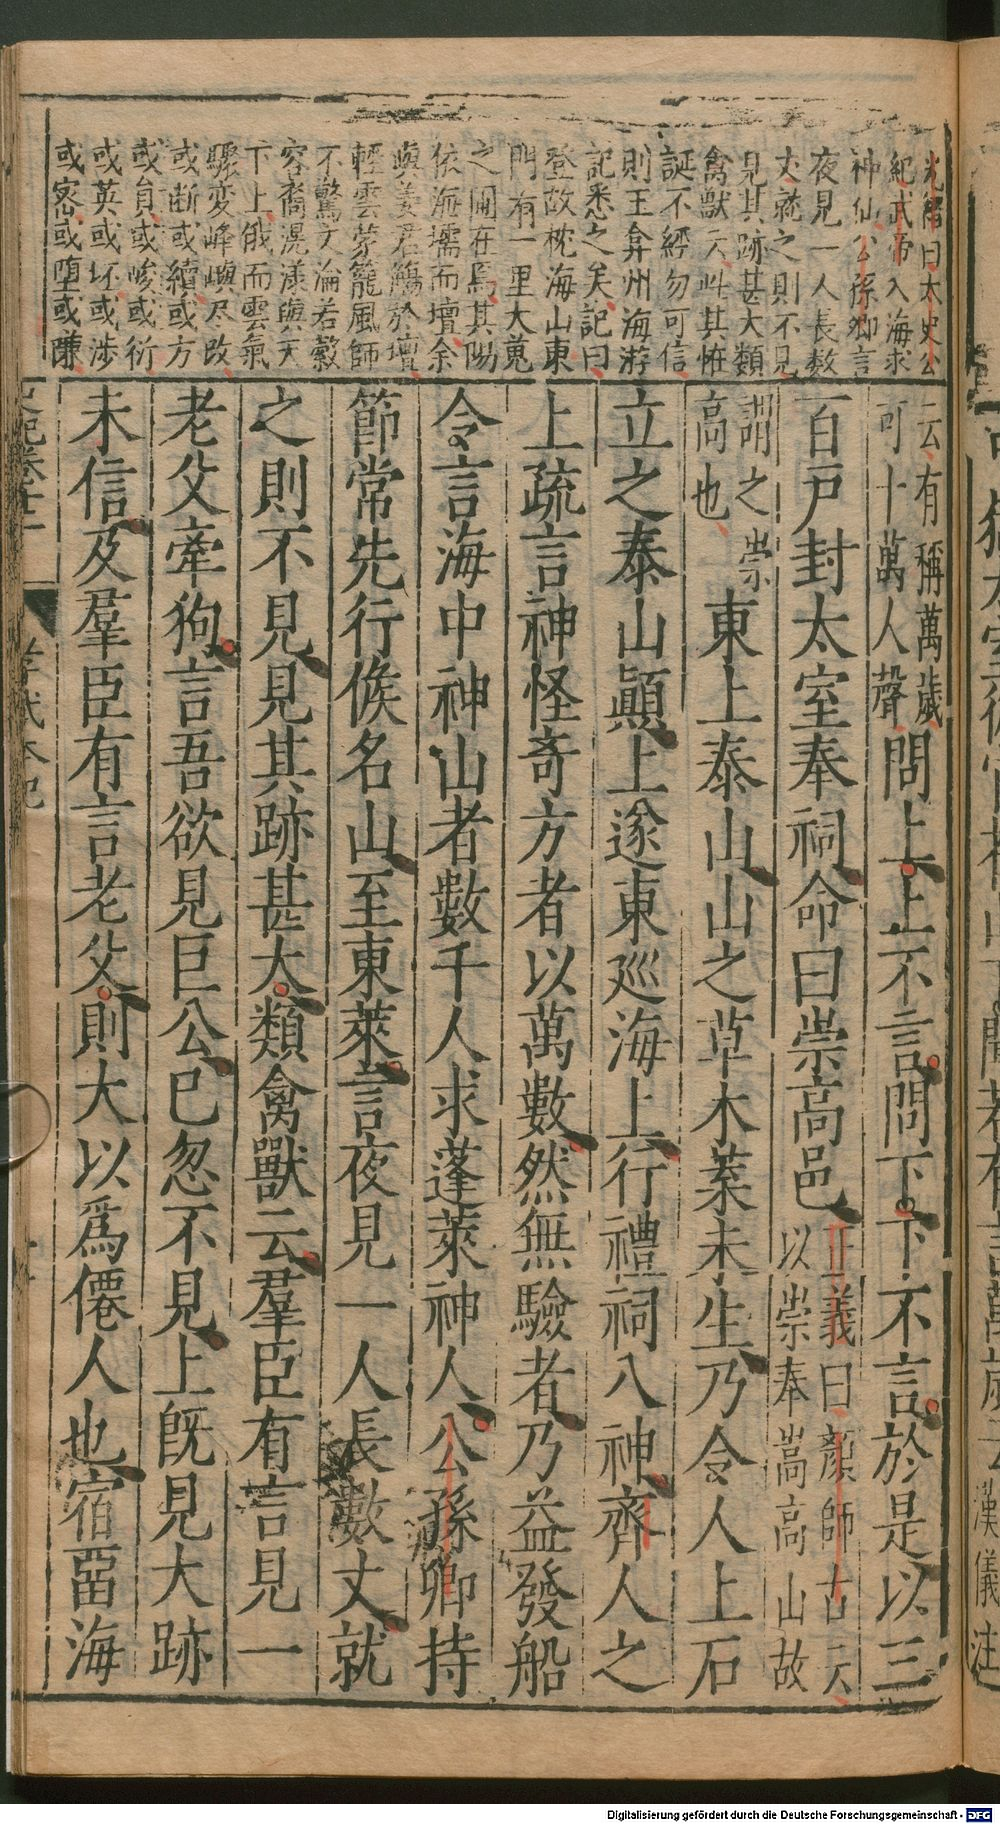 光縉曰太史公
紀武帝入海求
神仙公孫卿言
夜見一人長数
丈就之則不見
見其跡甚大類
禽獸云此其恠
誕不經勿可信
則王弇州海游
記悉之矣記曰
登故枕海山東
門有一里大蒐
之圃在焉其陽
依海壖而壇余
與姜君觴於壇
輕雲茀籠風師
不驚文淪若縠
容裔滉漾與天
下上俄而雲氣
驟変峰嶼尽改
或断或續或方
或負或峻或衍
或英或坯或渉
或密或堕或隒
云有稱萬歲
可十萬人聲問上上不言問下下不言於是以三
百戸封太室奉祠命曰崇高邑正義曰顏師古云
以崇奉嵩高山故
謂之崇
高也東上泰山山之草木葉未生乃令人上石
立之泰山顚上遂東廵海上行禮祠八神齊人之
上疏言神怪奇方者以萬數然無驗者乃益發船
令言海中神山者數千人求蓬萊神人公孫卿持
節常先行候名山至東萊言夜見一人長數丈就
之則不見見其跡甚大類禽獸云羣臣有言見一
老父牽狗言吾欲見巨公已忽不見上既見大跡
未信及羣臣有言老父則大以爲僊人也宿畱海
史記卷十二
孝武本紀
漢儀注
Digitalisierung gefördert durch die Deutsche Forschungsgemeinschaft - DFG